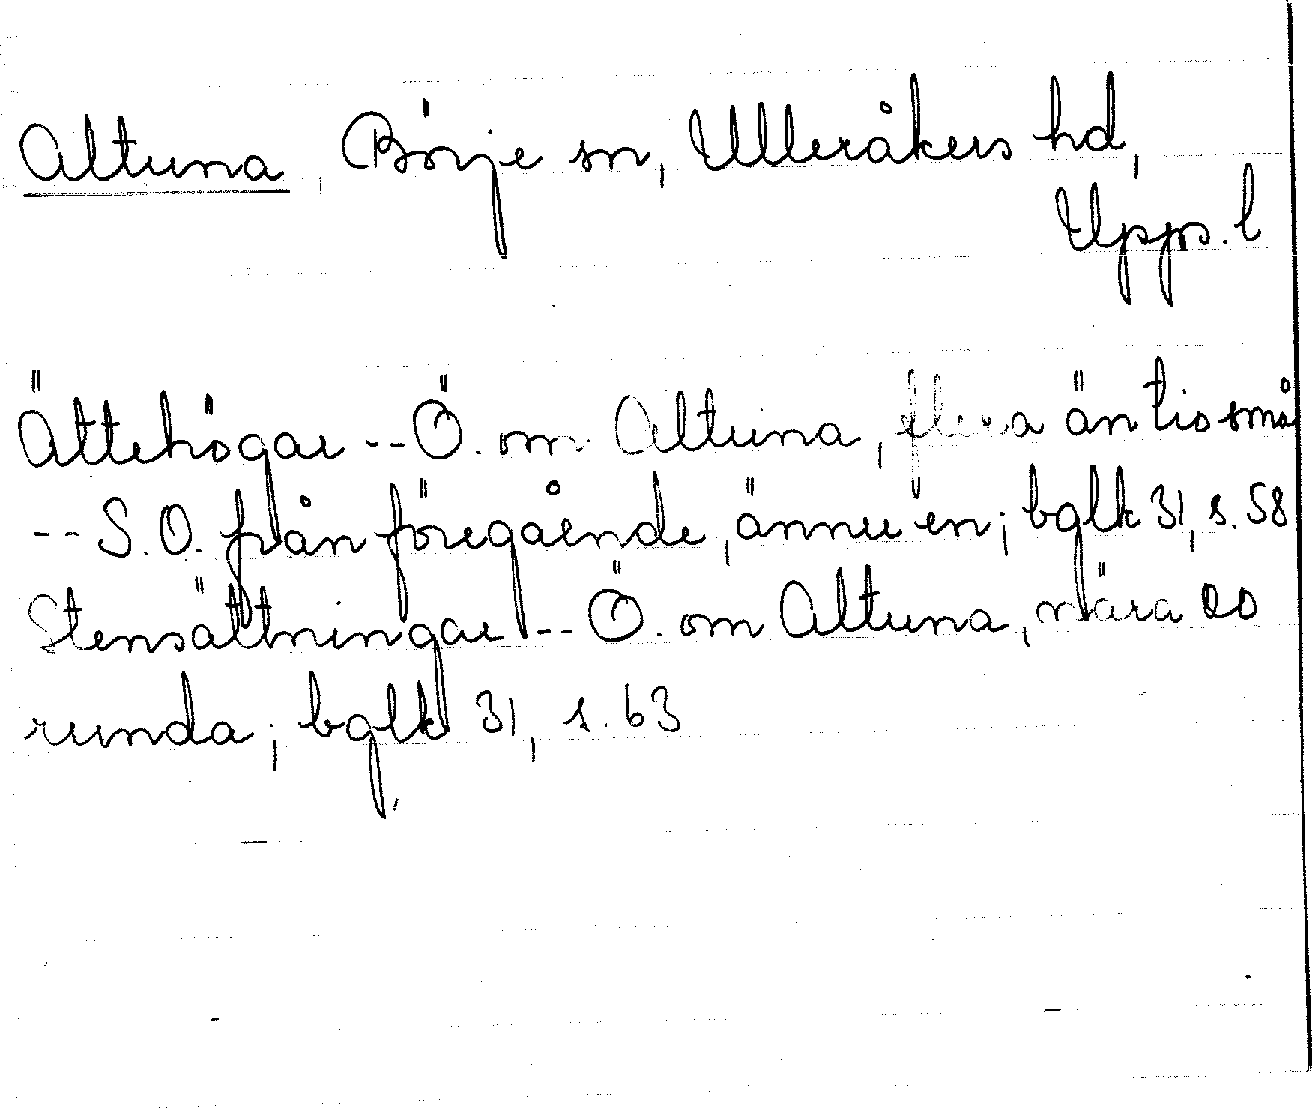 Altuna, Börje sn, Ulleråkers hd,
Upps. l
Ättehögar -- Ö. om Altuna, flera än tio små
-- S.O. från föregående, ännu en; bglk 31, s. 58
Stensättningar -- Ö. om Altuna, nära 20
runda; bglk 31, s. 63